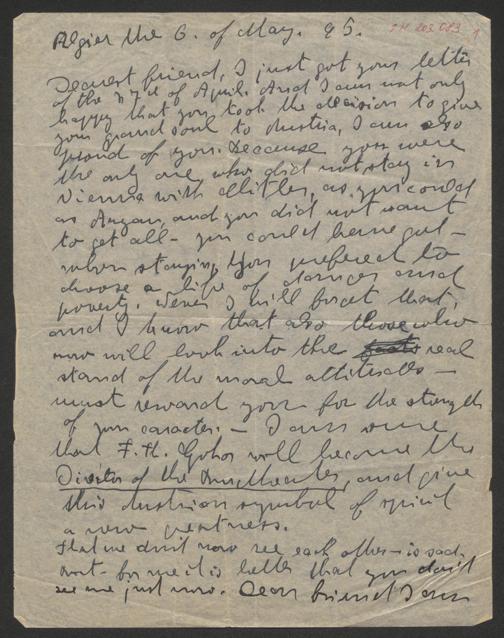 Algier the 6. of May. 45.
Dearest friend, I just got your letter
of the of April. And I am not only
happy that you took the decision to give
your grand soul to Austria, I am also
proud of you. Because you were
the only one, who did not stay in
Vienna with Hitler, as you could
as Aryan, and you did not want
to get all - you could have got -
when staying. You preferred to
choose a life of danger and
poverty. Never I will forget that,
and I know that also those who
now will look into the real
stand of the moral attitudes -
must reward you for the strength
of your caracter. - I am sure
that F. H. will become the
Director of the Burgtheater, and give
this Austrian symbol of spirit
a new greatness.
That we don't now see each other - is sad.
- for me it is better that you don't
see me just now. Dear friend I am